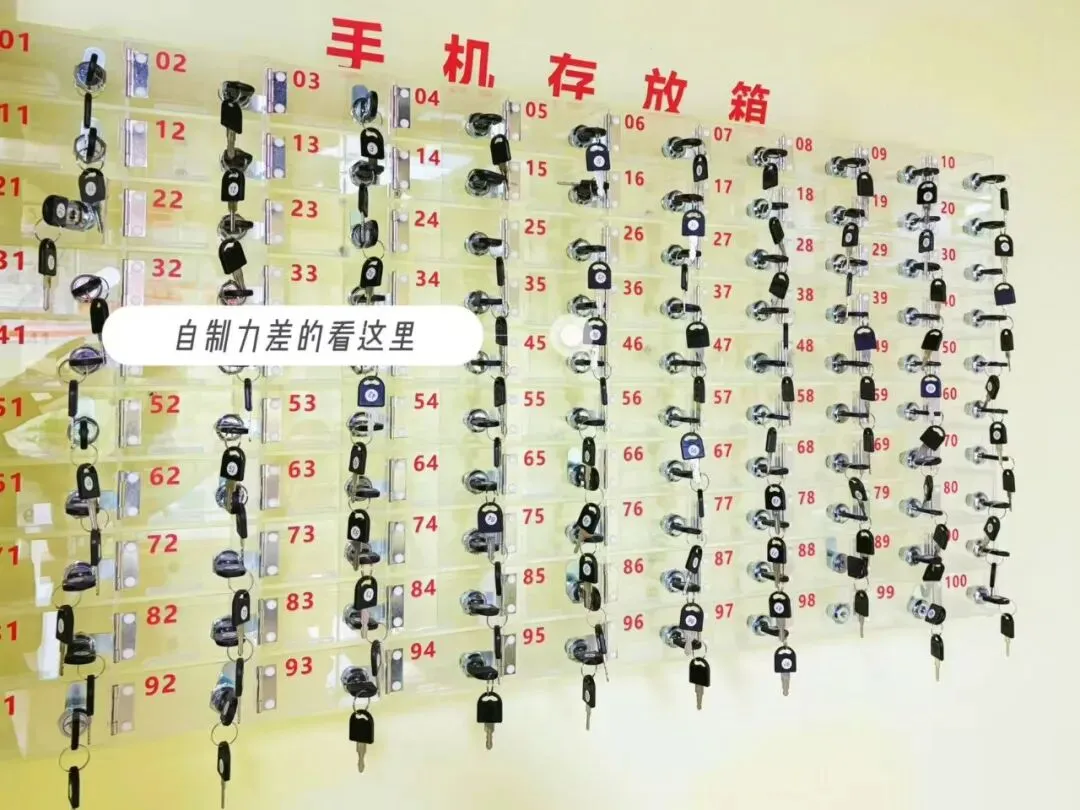 手机存放箱
01 02 03 04 05 06 07 08 09 10
11 12 13 14 15 16 17 18 19 20
21 22 23 24 25 26 27 28 29 30
31 32 33 34 35 36 37 38 39 40
自制力差的看这里
41 45 46 47 48 49 50
51 52 53 54 55 56 57 58 59 60
61 62 63 64 65 66 67 68 69 70
71 72 73 74 75 76 77 78 79 80
81 82 83 84 85 86 87 88 89 90
92 93 94 95 96 97 98 99 100